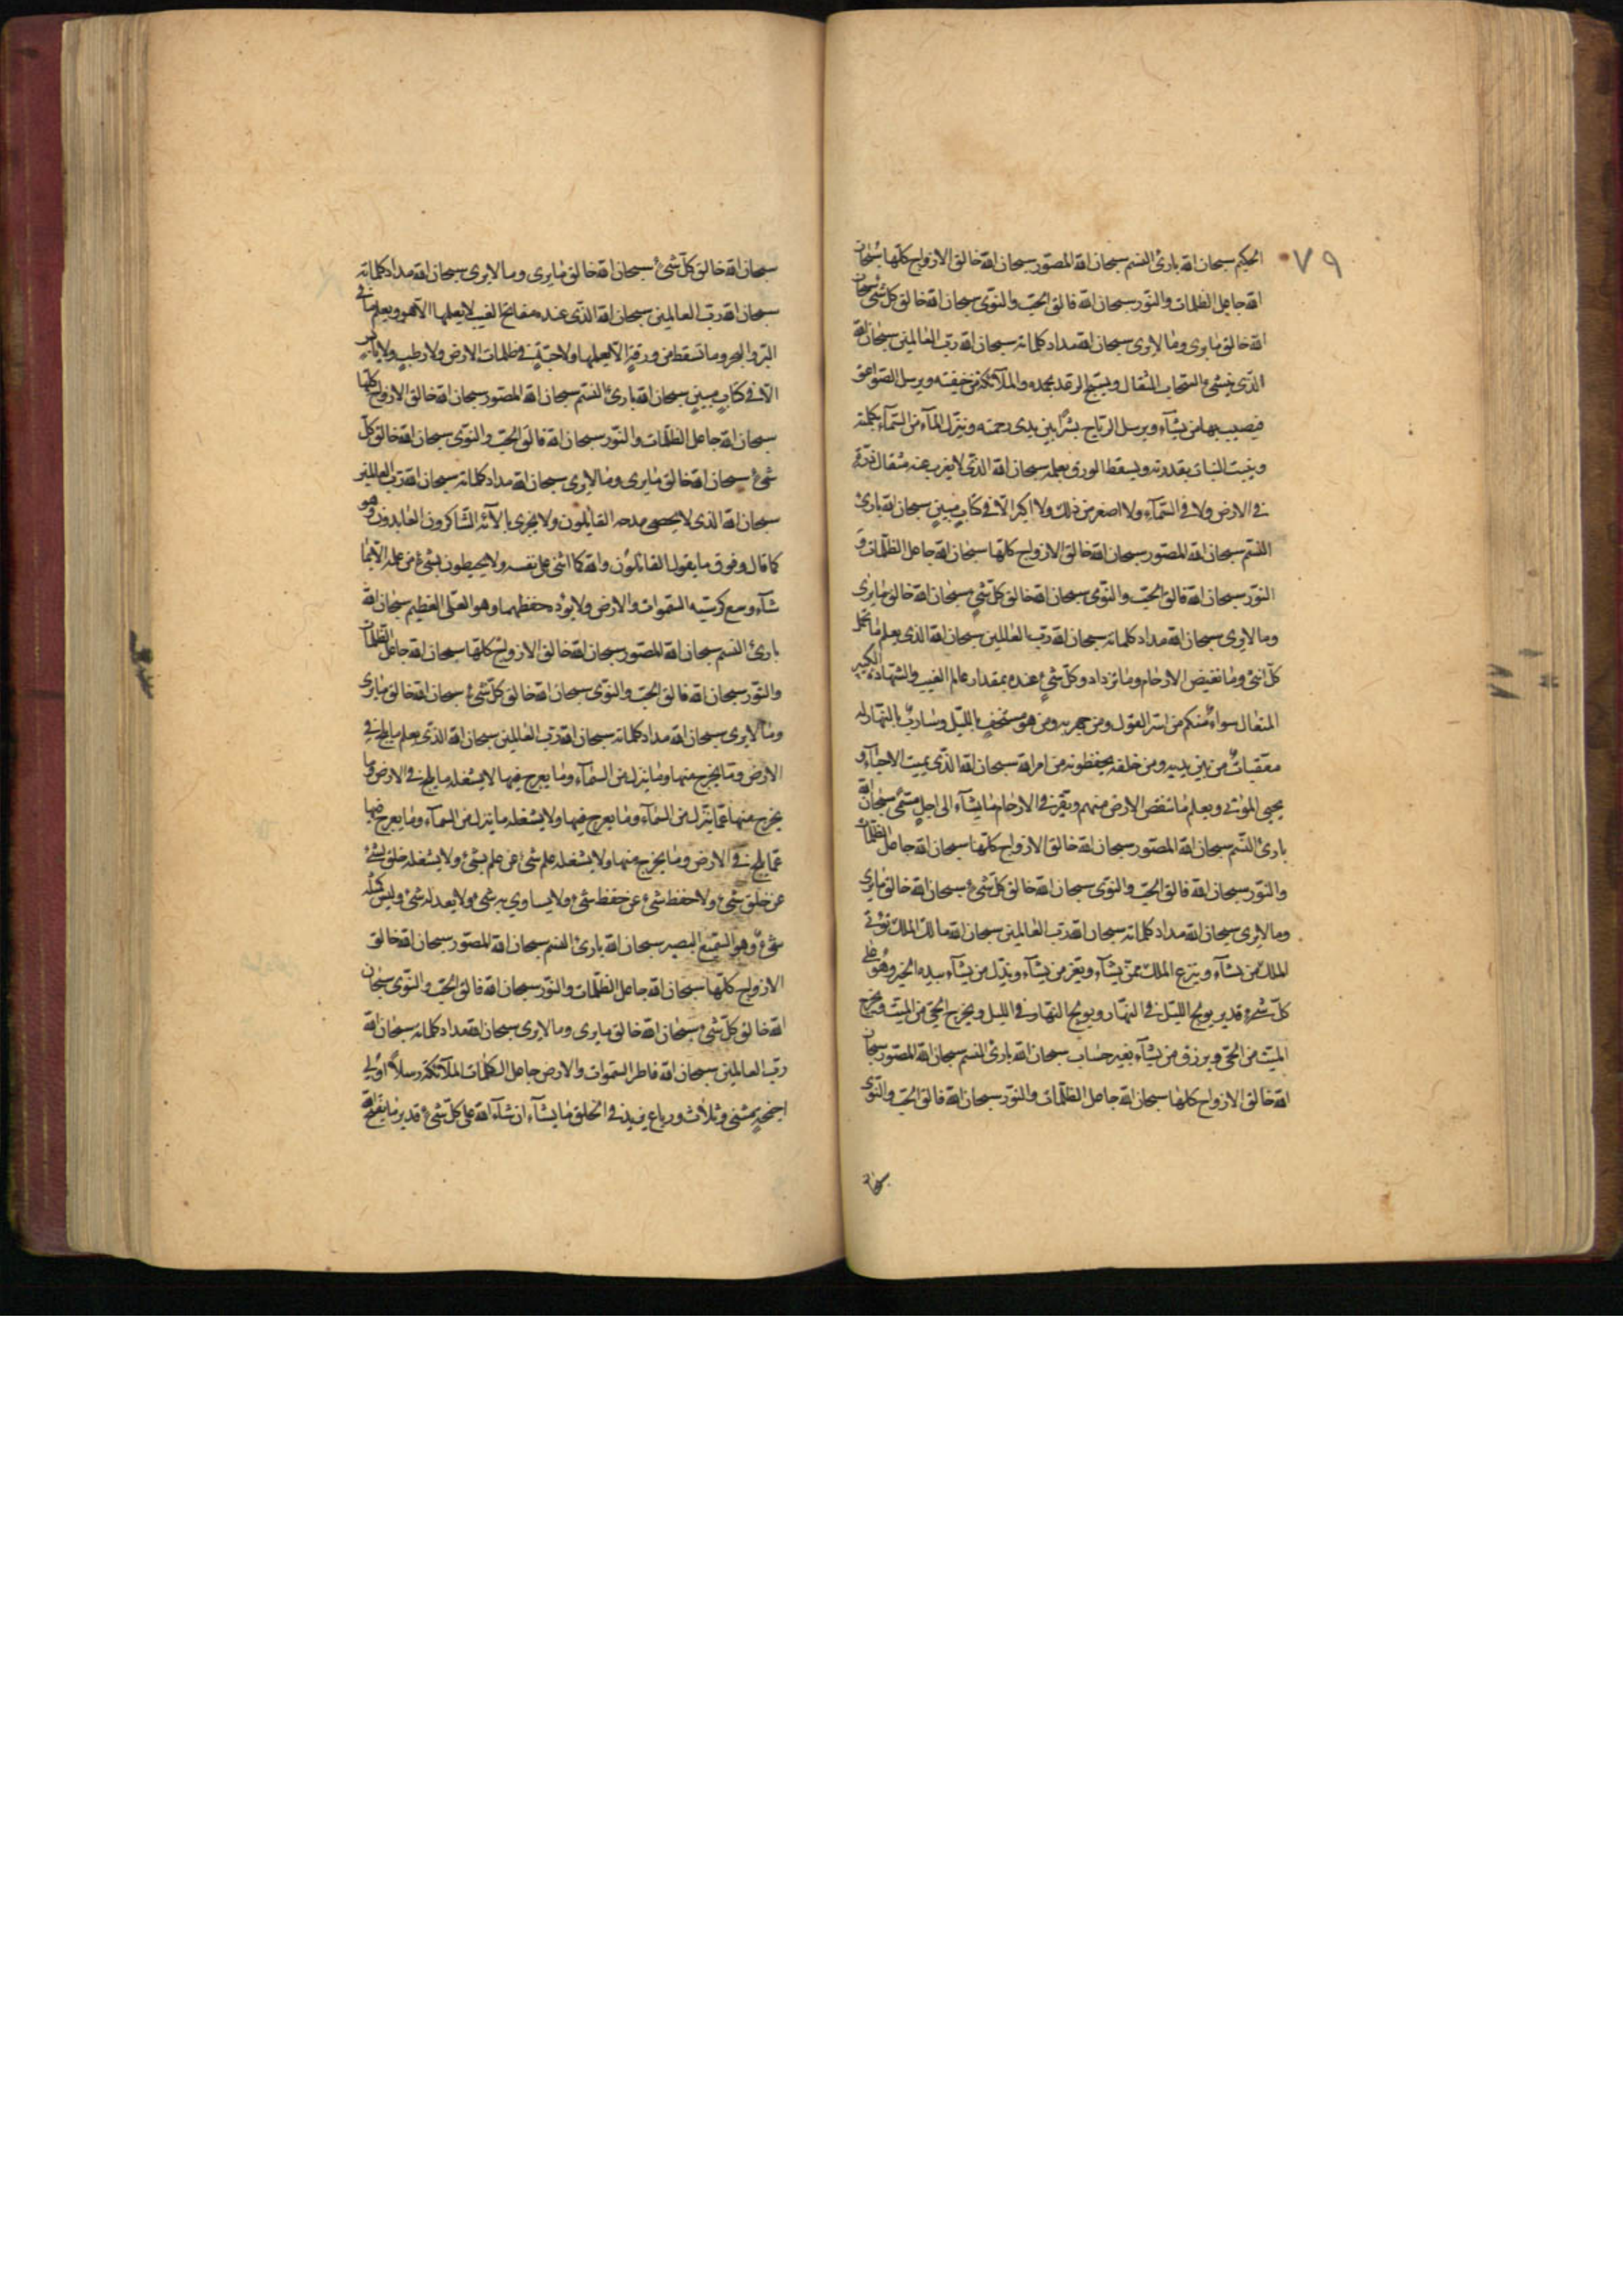 ٧٩
الحكيم سبحان الله بارئ النسم سبحان الله المصوّر سبحان الله خالق الازواج كلّها سبحان
الله جاعل الظلمات والنّور سبحان الله فالق الحبّ والنّوى سبحان الله خالق كلّ شئ سبحان
الله خالق مايرى وما لايرى سبحان الله مداد كلماته سبحان الله ربّ العالمين سبحان الله
الّذى ينشئ السّحاب الثقال ويسبّح الرعد بحمده والملآئكة من خيفته ويرسل الصّواعق
فيصيب بها من يشآء ويرسل الرّياح بشرًا بين يدى رحمته وينزّل المآء من السّمآء بكلمته
وينبت النبات بقدرته ويسقط الورق بعلمه سبحان الله الّذى لايعزب عنه مثقال ذرّة
فى الارض ولا فى السّمآء ولا اصغر من ذلك ولا اكبر الّا فى كتابٍ مبينٍ سبحان الله بارئ
النسم سبحان الله المصوّر سبحان الله خالق الازواج كلّها سبحان الله جاعل الظلّمات و
النّور سبحان الله فالق الحبّ والنّوى سبحان الله خالق كلّ شئٍ سبحان الله خالق مايرى
وما لايرى سبحان الله مداد كلماته سبحان الله ربّ العالمين سبحان الله الذى يعلم ما تحمل
كلّ انثى وما تغيض الارحام وما تزداد وكلّ شئٍ عنده بمقدار عالم الغيب والشّهادة الكبير
المتعال سواءٌ منكم من اسرّ القول ومن جهر به ومن هو مستخفٍ باللّيل وساربٌ بالنّهار له
معقّباتٌ من بين يديه ومن خلفه يحفظونه من امر الله سبحان الله الّذى يميت الاحيآء و
يحيى الموتى ويعلم ما تنقص الارض منهم ويقرّ فى الارحام ما يشآء الى اجلٍ مسمّى سبحان الله
بارئ النّسم سبحان الله المصوّر سبحان الله خالق الازواج كلّها سبحان الله جاعل الظلمات
والنّور سبحان الله فالق الحبّ والنوى سبحان الله خالق كلّ شئ سبحان الله خالق مايرى
وما لايرى سبحان الله مداد كلماته سبحان الله ربّ العالمين سبحان الله مالك الملك تؤتى
الملك من يشآء وينزع الملك ممّن يشآء ويعزّ من يشآء ويذلّ من يشآء بيده الخير وهو على
كلّ شئ قدير يولج اللّيل فى النّهار ويولج النّهار فى الليل ويخرج الحىّ من الميّت ويخرج
الميّت من الحىّ ويرزق من يشآء بغير حساب سبحان الله بارئ النسم سبحان الله المصوّر سبحان
الله خالق الازواج كلّها سبحان الله جاعل الظلّمات والنّور سبحان الله فالق الحبّ والنّوى
سبحان
سبحان الله خالق كلّ شئ سبحان الله خالق مايرى وما لايرى سبحان الله مداد كلماته
سبحان الله ربّ العالمين سبحان الله الّذى عنده مفاتح الغيب لايعلمها الّا هو ويعلم ما فى
البرّ والبحر وما تسقط من ورقةٍ الّا يعلمها ولا حبّةٍ فى ظلمات الارض ولا رطبٍ ولا يابسٍ
الّا فى كتابٍ مبينٍ سبحان الله بارئ النسم سبحان الله المصوّر سبحان الله خالق الازواج كلّها
سبحان الله جاعل الظلّمات والنّور سبحان الله فالق الحبّ والنّوى سبحان الله خالق كلّ
شئ سبحان الله خالق مايرى وما لايرى سبحان الله مداد كلماته سبحان الله ربّ العالمين
سبحان الله الذى لايحصى مدحه القائلون ولا يجزى بالآئه الشّاكرون العابدون وهو
كما قال وفوق ما يقول القائلون والله كما اثنى على نفسه ولا يحيطون بشئ من علمه الّا بما
شآء وسع كرسيّه السّموات والارض ولا يؤده حفظهما وهو العلىّ العظيم سبحان الله
بارئ النسم سبحان الله المصوّر سبحان الله خالق الازواج كلّها سبحان الله جاعل الظلمات
والنّور سبحان الله فالق الحبّ والنّوى سبحان الله خالق كلّ شئ سبحان الله خالق مايرى
وما لايرى سبحان الله مداد كلماته سبحان الله ربّ العالمين سبحان الله الذّى يعلم ما يلج فى
الارض وما يخرج منها وما ينزل من السّمآء وما يعرج فيها لايشغله ما يلج فى الارض وما
يخرج منها عمّا ينزل من السّمآء وما يعرج فيها ولا يشغله ما ينزل من السمآء وما يعرج فيها
عمّا يلج فى الارض وما يخرج منها ولا يشغله علم شئ عن علم شئ ولا يشغله خلق شئ
عن خلق شئ ولا حفظ شئ عن حفظ شئ ولا يساوي به شئ ولا يعدله شئ وليس كمثله
شئ وهو السّميع البصير سبحان الله بارئ النسم سبحان الله المصوّر سبحان الله خالق
الازواج كلّها سبحان الله جاعل الظلّمات والنّور سبحان الله فالق الحبّ والنّوى سبحان
الله خالق كلّ شئ سبحان الله خالق مايرى وما لايرى سبحان الله مداد كلماته سبحان الله
ربّ العالمين سبحان الله فاطر السّموات والارض جاعل الملآئكة رسلاً اولى
اجنحةٍ مثنى وثلاث ورباع يزيد فى الخلق ما يشآء ان شآء الله على كلّ شئ قدير ما يفتح الله